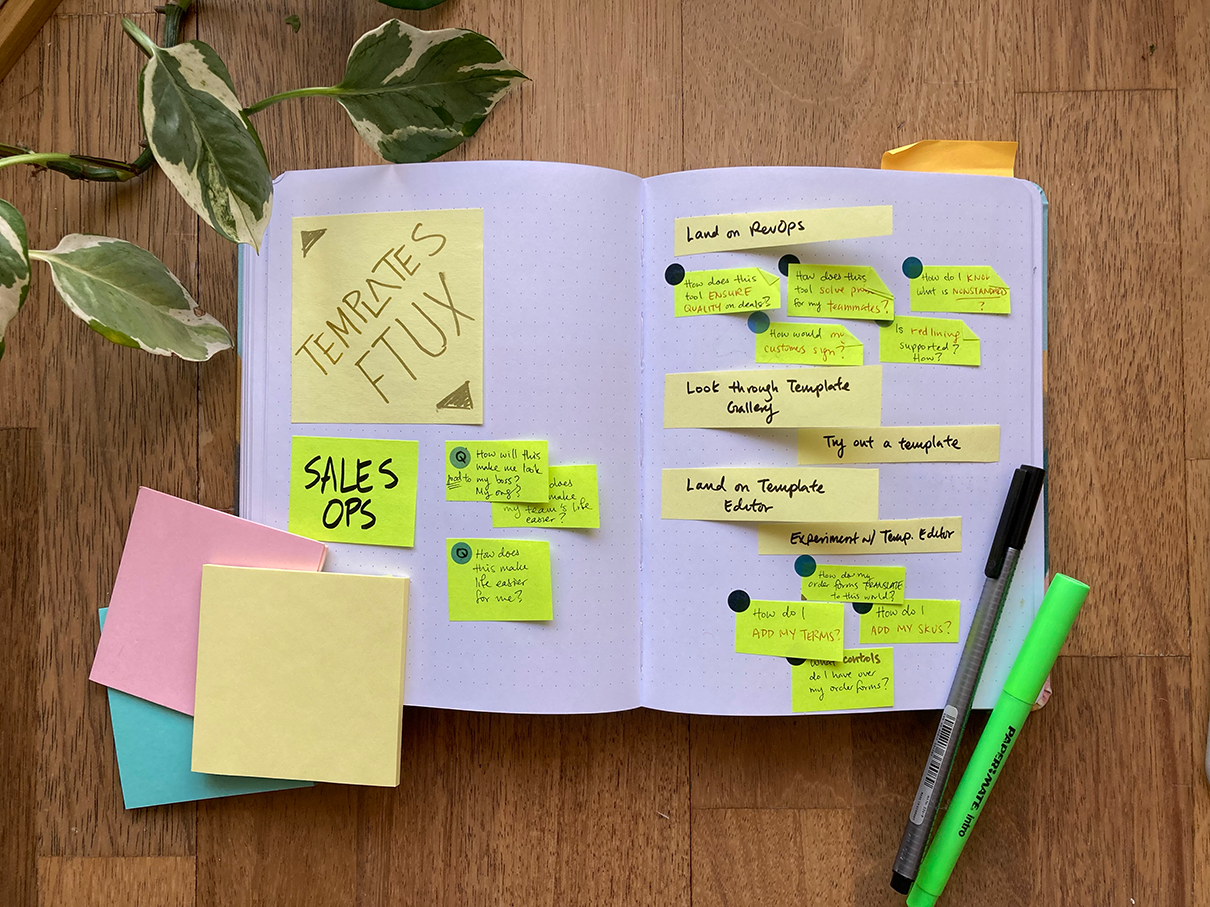 TEMPLATES
FTUX
SALES
OPS
Q
How will this
make me look
good to my boss?
My org?
does
make
my team's life
easier?
Q
How does
this make
life easier
for me?
Land on RevOps
How does this
tool ENSURE
QUALITY on deals?
How does this
tool solve
for my teammates?
How do I KNOW
what is NONSTANDARD
?
How would my
customers sign?
Is redlining
supported?
How?
Look through Template
Gallery
Try out a template
Land on Template
Editor
Experiment w/ Temp. Editor
How do my
order forms TRANSLATE
to this world?
How do I
ADD MY TERMS?
How do I
ADD MY SKUS?
What controls
do I have over
my order forms?
PAPER MATE intro